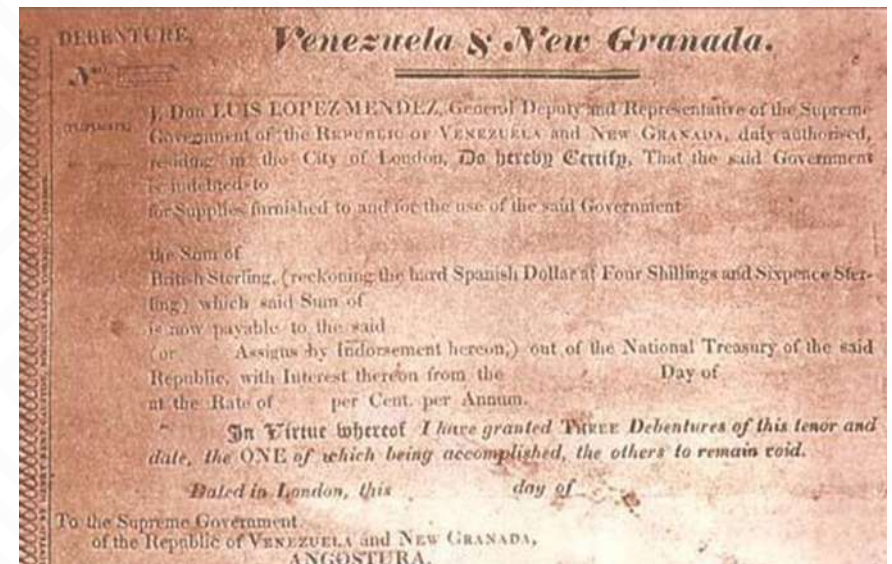 DEBENTURE,
Venezuela & New Granada.
No.
I, Don LUIS LOPEZ MENDEZ, General Deputy and Representative of the Supreme
Government of the REPUBLIC OF VENEZUELA and NEW GRANADA, duly authorised,
residing in the City of London, Do hereby Certify, That the said Government
is indebted to
for Supplies furnished to and for the use of the said Government
the Sum of
British Sterling, (reckoning the hard Spanish Dollar at Four Shillings and Sixpence Ster-
ling) which said Sum of
is now payable to the said
(or Assigns by Indorsement hereon,) out of the National Treasury of the said
Republic, with Interest thereon from the Day of
at the Rate of per Cent. per Annum.
In Virtue whereof I have granted THREE Debentures of this tenor and
date, the ONE of which being accomplished, the others to remain void.
Dated in London, this day of
To the Supreme Government
of the Republic of VENEZUELA and NEW GRANADA,
ANGOSTURA.